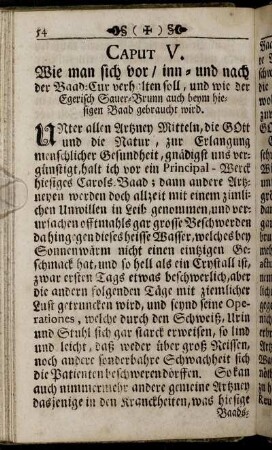 54 ( ✠ )
CAPUT V.
Wie man sich vor / inn- und nach
der Baad-Cur verhalten soll, und wie der
Egerisch Sauer-Brunn auch beym hie-
sigen Baad gebraucht wird.
UNter allen Artzney Mitteln, die GOtt
und die Natur, zur Erlangung
menschlicher Gesundheit, gnädigst uns ver-
günstiget, halt ich vor ein Principal-Werck
hiesiges Carols-Baad; dann andere Artz-
neyen werden doch allzeit mit einem ziml-
chen Unwillen in Leib genommen, und ver-
ursachen offtmahls gar grosse Beschwerden
dahingegen dieses heisse Wasser, welches bey
Sonnenwärm nicht einen eintzigen Ge-
schmack hat, und so hell als ein Crystall ist,
zwar ersten Tags etwas beschwerlich, aber
die andern folgenden Täge mit ziemlicher
Lust getruncken wird, und seynd seine Ope-
rationes, welche durch den Schweitz, Urin
und Stuhl sich gar starck erweisen, so lind
und leicht, daß weder über groß Reissen,
noch andere sonderbahre Schwachheit sich
die Patienten beschweren dörffen. So kan
auch nimmermehr andere gemeine Artzney
dasjenige in den Kranckheiten, was hiesige
Baads-